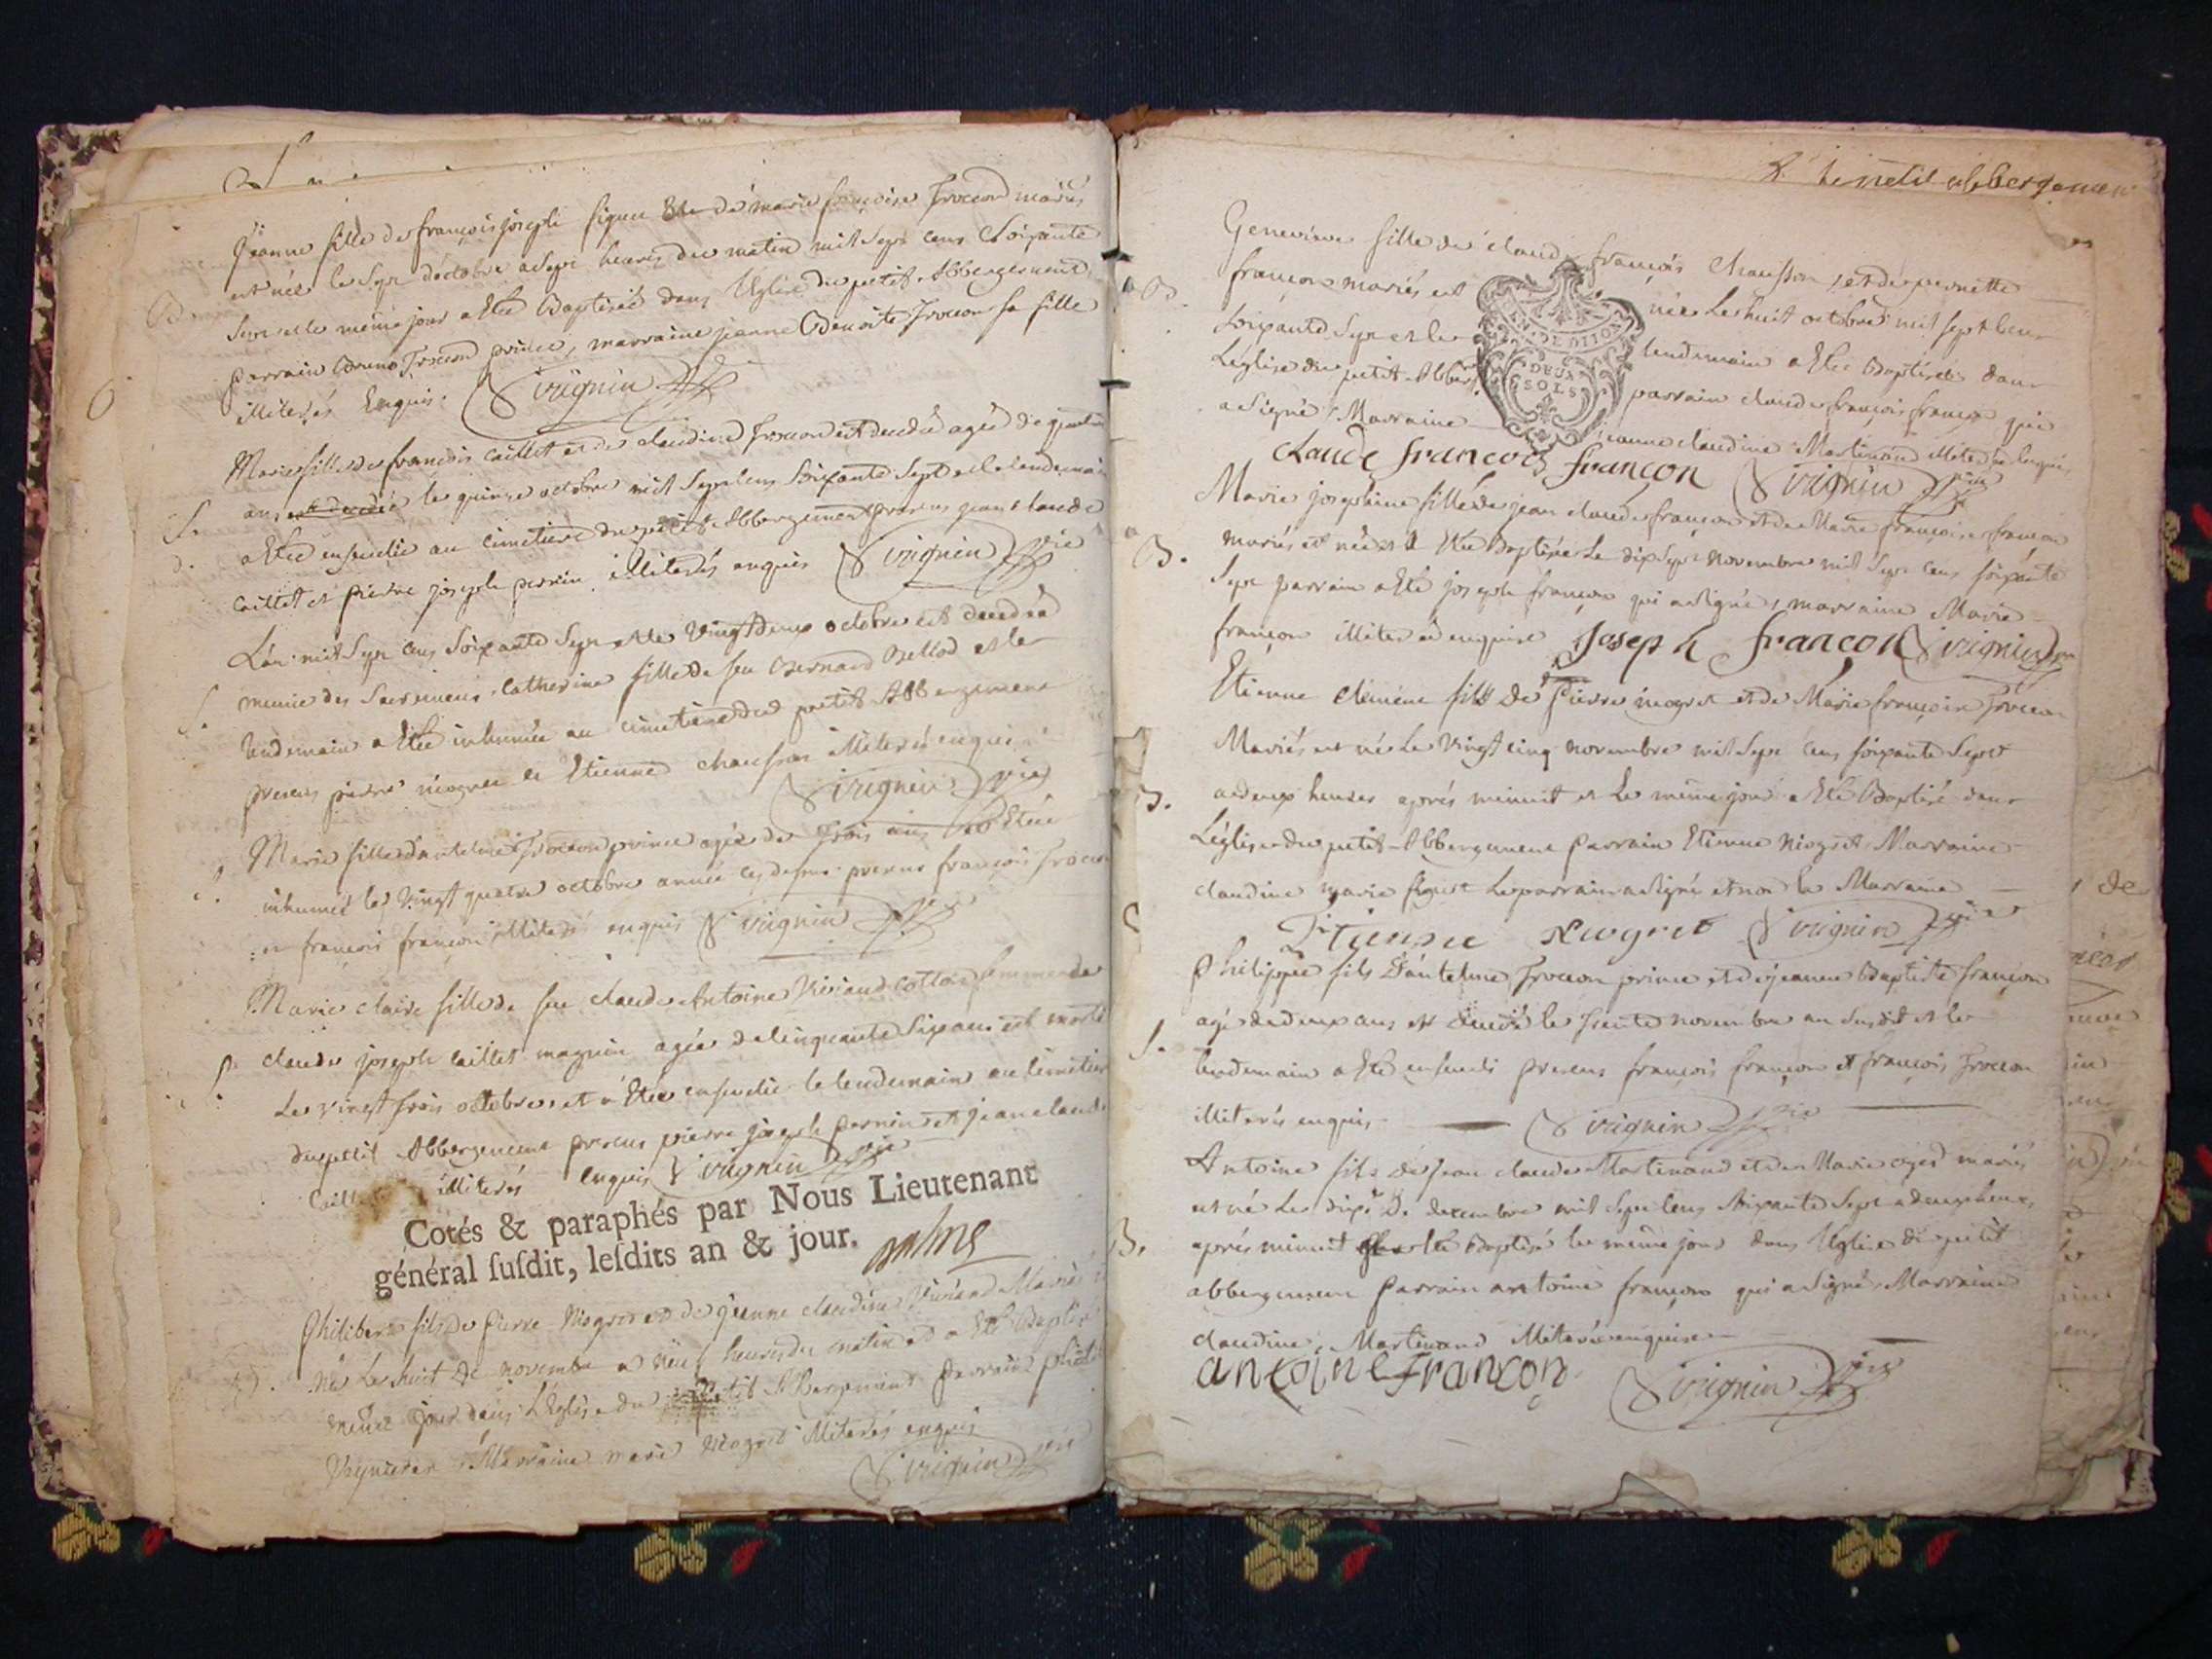 Jeanne fille de françois joseph figuet et de marie françoise Trocon mariés
est née le sept d'octobre a sept heures du matin mil sept cens soixante
sept et le même jour a Eté Baptisée dans l'Eglise du petit Abbergement
parrain Bruno Trocon prince, marraine jeanne Benoite Trocon sa fille
illiterés Enquis. Sirignin vic
B.
Marie fille de françois Caillet et de claudine Trocon est decedée agée de
ans est decedée le quinze octobre mil sept cens soixante sept et le lendemain
S.
a Eté ensevelie au cimetiere du petit Abbergement presens jean claude
Caillet et pierre joseph perrin illiterés enquis Sirignin vic
L'an mil sept cens soixante sept et le vingt deux octobre est decedée
munie des Sacremens Catherine fille de feu Bernard Bellod et le
S.
lendemain a Eté inhumée au cimetiere du petit Abbergement
presens pierre niogret et Etienne chausson illiterés enquis
Sirignin vic
Marie fille d'antelme Trocon prince agée de trois ans a Etée
S.
inhumée le vingt quatre octobre année cy dessus presens françois Trocon
et françois françon illiterés enquis Sirignin vic
Marie claire fille de feu claude Antoine Vivand Cotton femme de
S.
claude joseph Caillet magnin agée de cinquante six ans est morte
Le vingt trois octobre et a Etée ensevelie le lendemain au cimetiere
du petit Abbergement presens pierre joseph perrin et jean claude
Caillet illiterés enquis Sirignin vic
Cotés & paraphés par Nous Lieutenant
général ſuſdit, leſdits an & jour.
Philibert fils de Pierre Niogret et de jeanne claudine Vivand Mariés
B.
né Le huit de novembre a neuf heures du matin et a Eté Baptisé
même jour dans L'Eglise du petit Abbergement parrain
Marraine marie Niogret illiterés enquis
Sirignin vic
petit abbergement
Genevieve fille de claude françois chausson, et de pernette
B.
françon mariés est née Le huit octobre mil sept cens
soixante sept et le lendemain a Etée Baptisée dans
L'eglise du petit Abberg. parrain claude françois françon qui
a signé, Marraine jeanne claudine Martinand illiterée enquise
EN. DE DIJON
DEUX
SOLS
claude francois françon Sirignin vic
Marie josephine fille de jean claude françon et de Marie françoise françon
B.
mariés est née et a Eté Baptisée Le dix sept novembre mil sept cens soixante
sept parrain a Eté joseph françon qui a signé, marraine Marie
françon illiterée enquise Joseph françon Sirignin vic
Etienne clement fils de Pierre niogret et de Marie françoise Trocon
Mariés est né Le vingt cinq novembre mil sept cens soixante sept
B.
a deux heures aprés minuit et Le même jour a Eté Baptisé dans
L'église du petit Abbergement parrain Etienne Niogret, Marraine
claudine marie figuet Le parrain a signé et non la Marraine
Etienne Niogret Sirignin vic
Philippe fils d'antelme Trocon prince et de jeanne Baptiste françon
agé de deux ans est decedé le trente novembre an susdit et le
S.
lendemain a Eté enseveli presens françois françon et françois Trocon
illiterés enquis Sirignin vic
Antoine fils de jean claude Martinand et de Marie mariés
est né Le dix De decembre mil sept cens soixante sept a deux heures
B.
aprés minuit Eté Baptisé le même jour dans l'Eglise du petit
abbergement parrain antoine françon qui a signé, Marraine
claudine Martinand illiterée enquise
antoine françon Sirignin vic